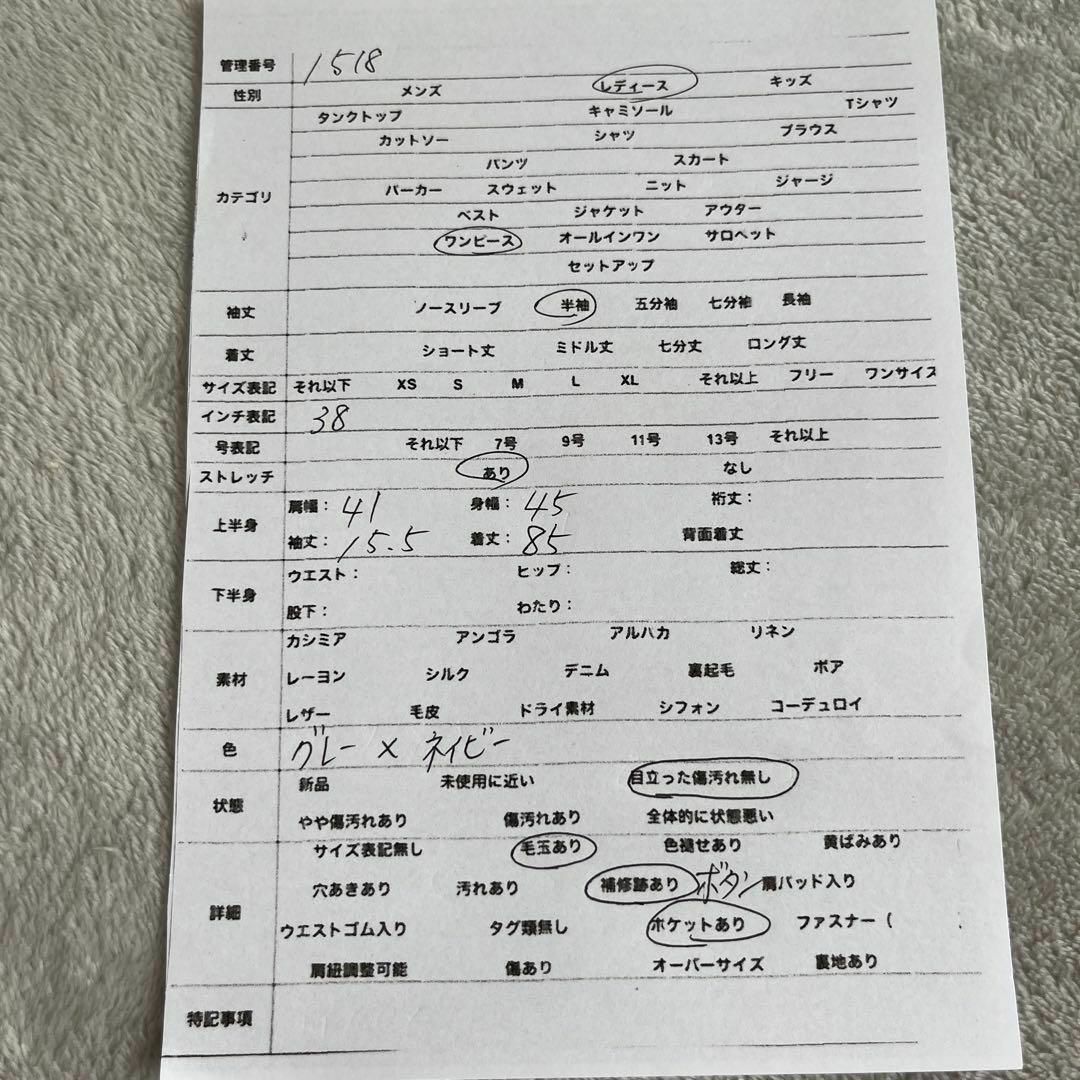 管理番号 1518
性別 メンズ レディース キッズ
タンクトップ キャミソール Tシャツ
カットソー シャツ ブラウス
パンツ スカート
カテゴリ パーカー スウェット ニット ジャージ
ベスト ジャケット アウター
ワンピース オールインワン サロペット
セットアップ
袖丈 ノースリーブ 半袖 五分袖 七分袖 長袖
着丈 ショート丈 ミドル丈 七分丈 ロング丈
サイズ表記 それ以下 XS S M L XL それ以上 フリー ワンサイズ
インチ表記 38
号表記 それ以下 7号 9号 11号 13号 それ以上
ストレッチ あり なし
上半身 肩幅: 41 身幅: 45 裄丈:
袖丈: 15.5 着丈: 85 背面着丈
下半身 ウエスト: ヒップ: 総丈:
股下: わたり:
カシミア アンゴラ アルパカ リネン
素材 レーヨン シルク デニム 裏起毛 ボア
レザー 毛皮 ドライ素材 シフォン コーデュロイ
色 グレー × ネイビー
状態 新品 未使用に近い 目立った傷汚れ無し
やや傷汚れあり 傷汚れあり 全体的に状態悪い
サイズ表記無し 毛玉あり 色褪せあり 黄ばみあり
詳細 穴あきあり 汚れあり 補修跡あり ボタン 肩パッド入り
ウエストゴム入り タグ類無し ポケットあり ファスナー (
肩紐調整可能 傷あり オーバーサイズ 裏地あり
特記事項